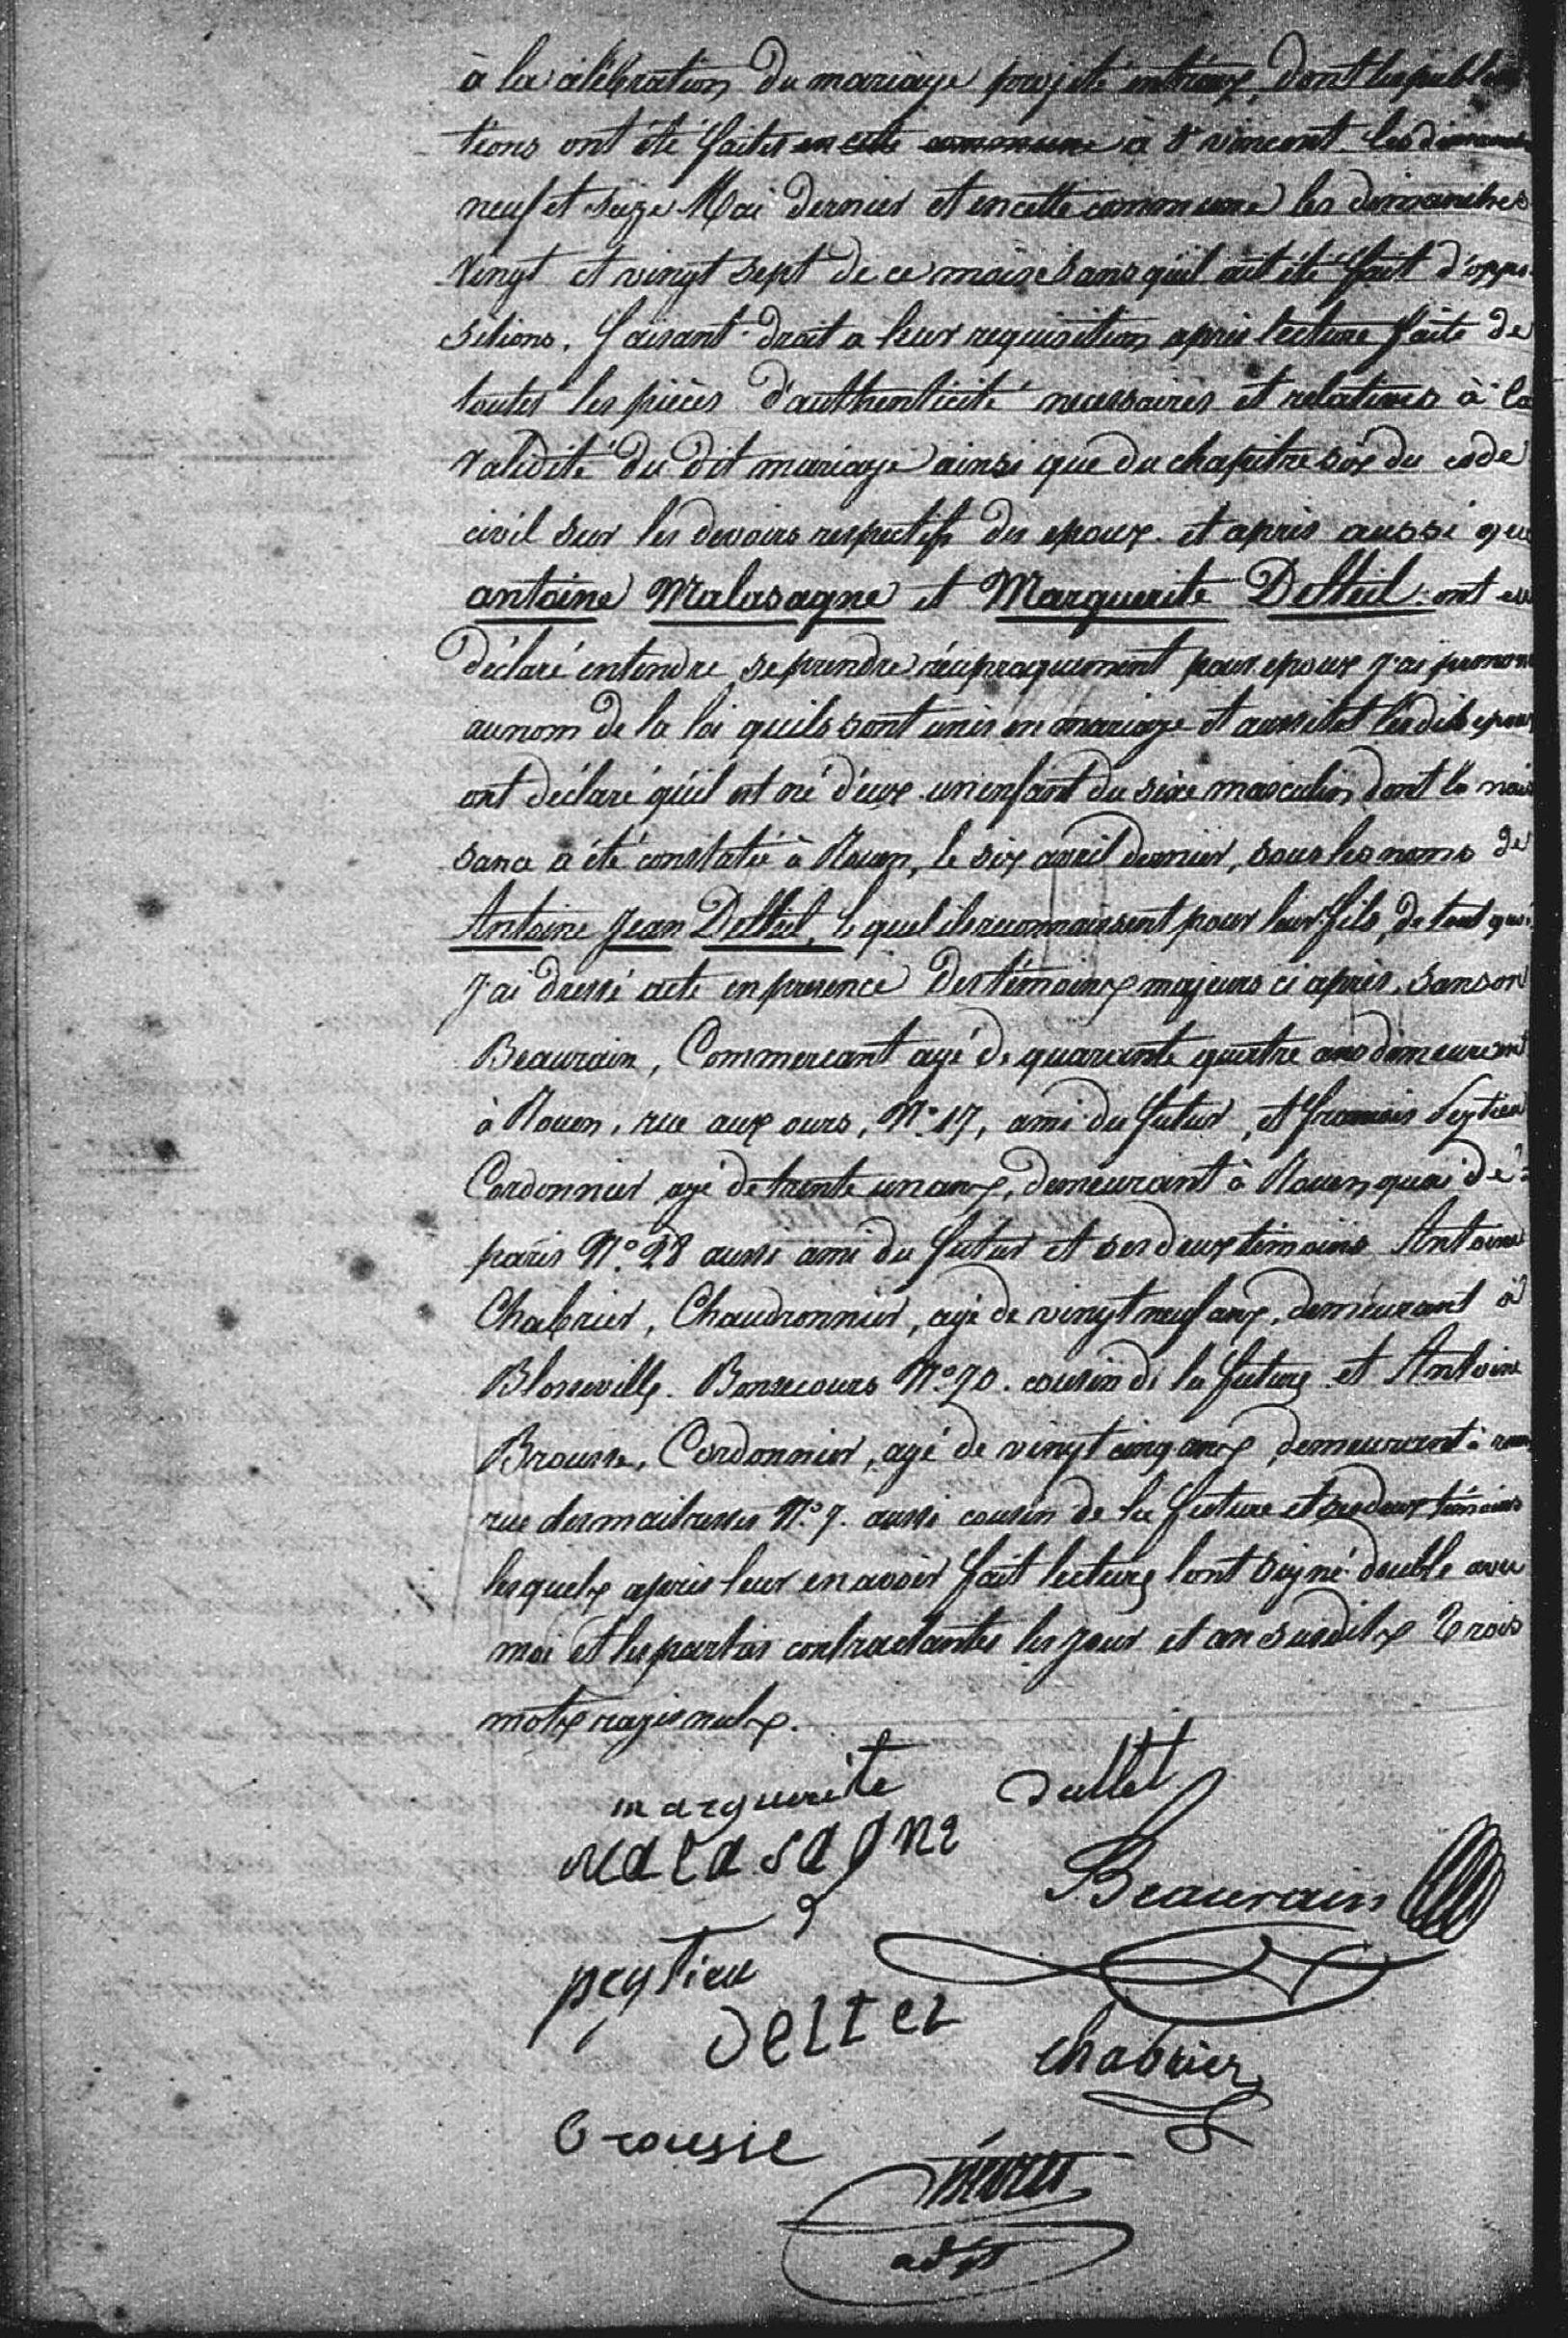 à la célébration du mariage projeté entr'eux, dont les publica
tions ont été faites en cette commune à St vincent les dimanches
neuf et seize Mai dernier et en cette commune les dimanches
vingt et vingt sept de ce mois sans qu'il ait été fait d'oppo
sitions. faisant droit a leur requisition après lecture faite de
toutes les pièces d'authenticité necessaires et relatives à la
validité du dit mariage ainsi que du chapitre six du code
civil sur les devoirs respectifs des epoux et après aussi que
antoine Malasagne et Marguerite Delteil ont eu
déclaré entendre se prendre réciproquement pour epoux j'ai prononcé
au nom de la loi quils sont unis en mariage et aussitot les dits epoux
ont déclaré qu'il est né d'eux un enfant du sexe masculin dont la nais
sance a été constatée à Rouen, le six avril dernier, sous les noms de
Antoine Jean Delteil, le quel ils reconnaissent pour leur fils, de tout quoi
j'ai dressé acte en presence des témoins majeurs ci après, sanson
Beaurain, Commercant agé de quarante quatre ans demeurant
à Rouen, rue aux ours, No. 17, ami du futur, et francois Peytieu
Cordonnier agé de trente un ans, demeurant à Rouen quai de
paris No. 28 aussi ami du futur et ses deux témoins Antoine
Chabrier, Chaudronnier, agé de vingt neuf ans, demeurant à
Blosseville Bonsecours No 70. cousin de la future et Antoine
Brousse, Cordonnier, agé de vingt cinq ans, demeurant à rouen
rue des maitresses No. 7. aussi cousin de la future et ses deux témoins
lesquels après leur en avoir fait lecture l'ont signé double avec
moi et les parties contractantes les jour et an susdits Trois
mots rayés nuls.
marguerite Daltet
Malasagne
Beaurain
peytieu
Deltel
Chabrier
Brousse
adjt